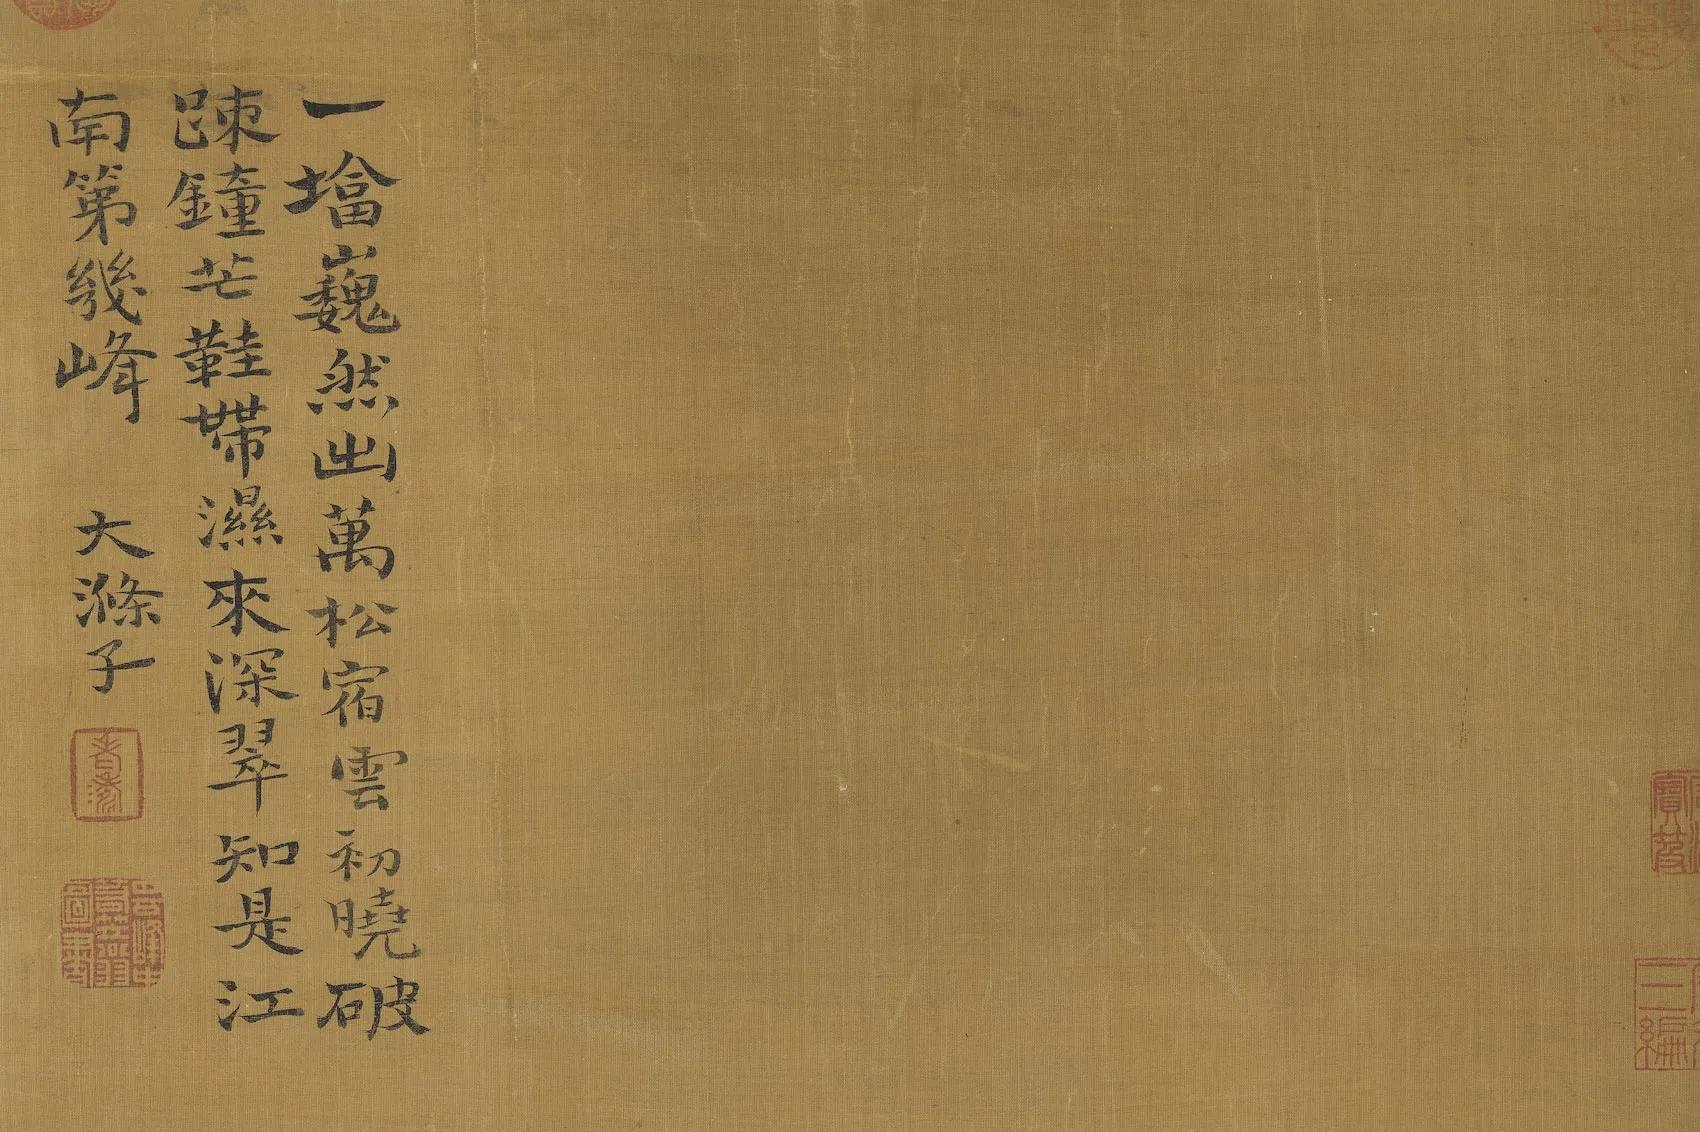 一㙮巍然出萬松宿雲初曉破
疎鐘芒鞋帶濕來深翠知是江
南第幾峰　大滌子
三編